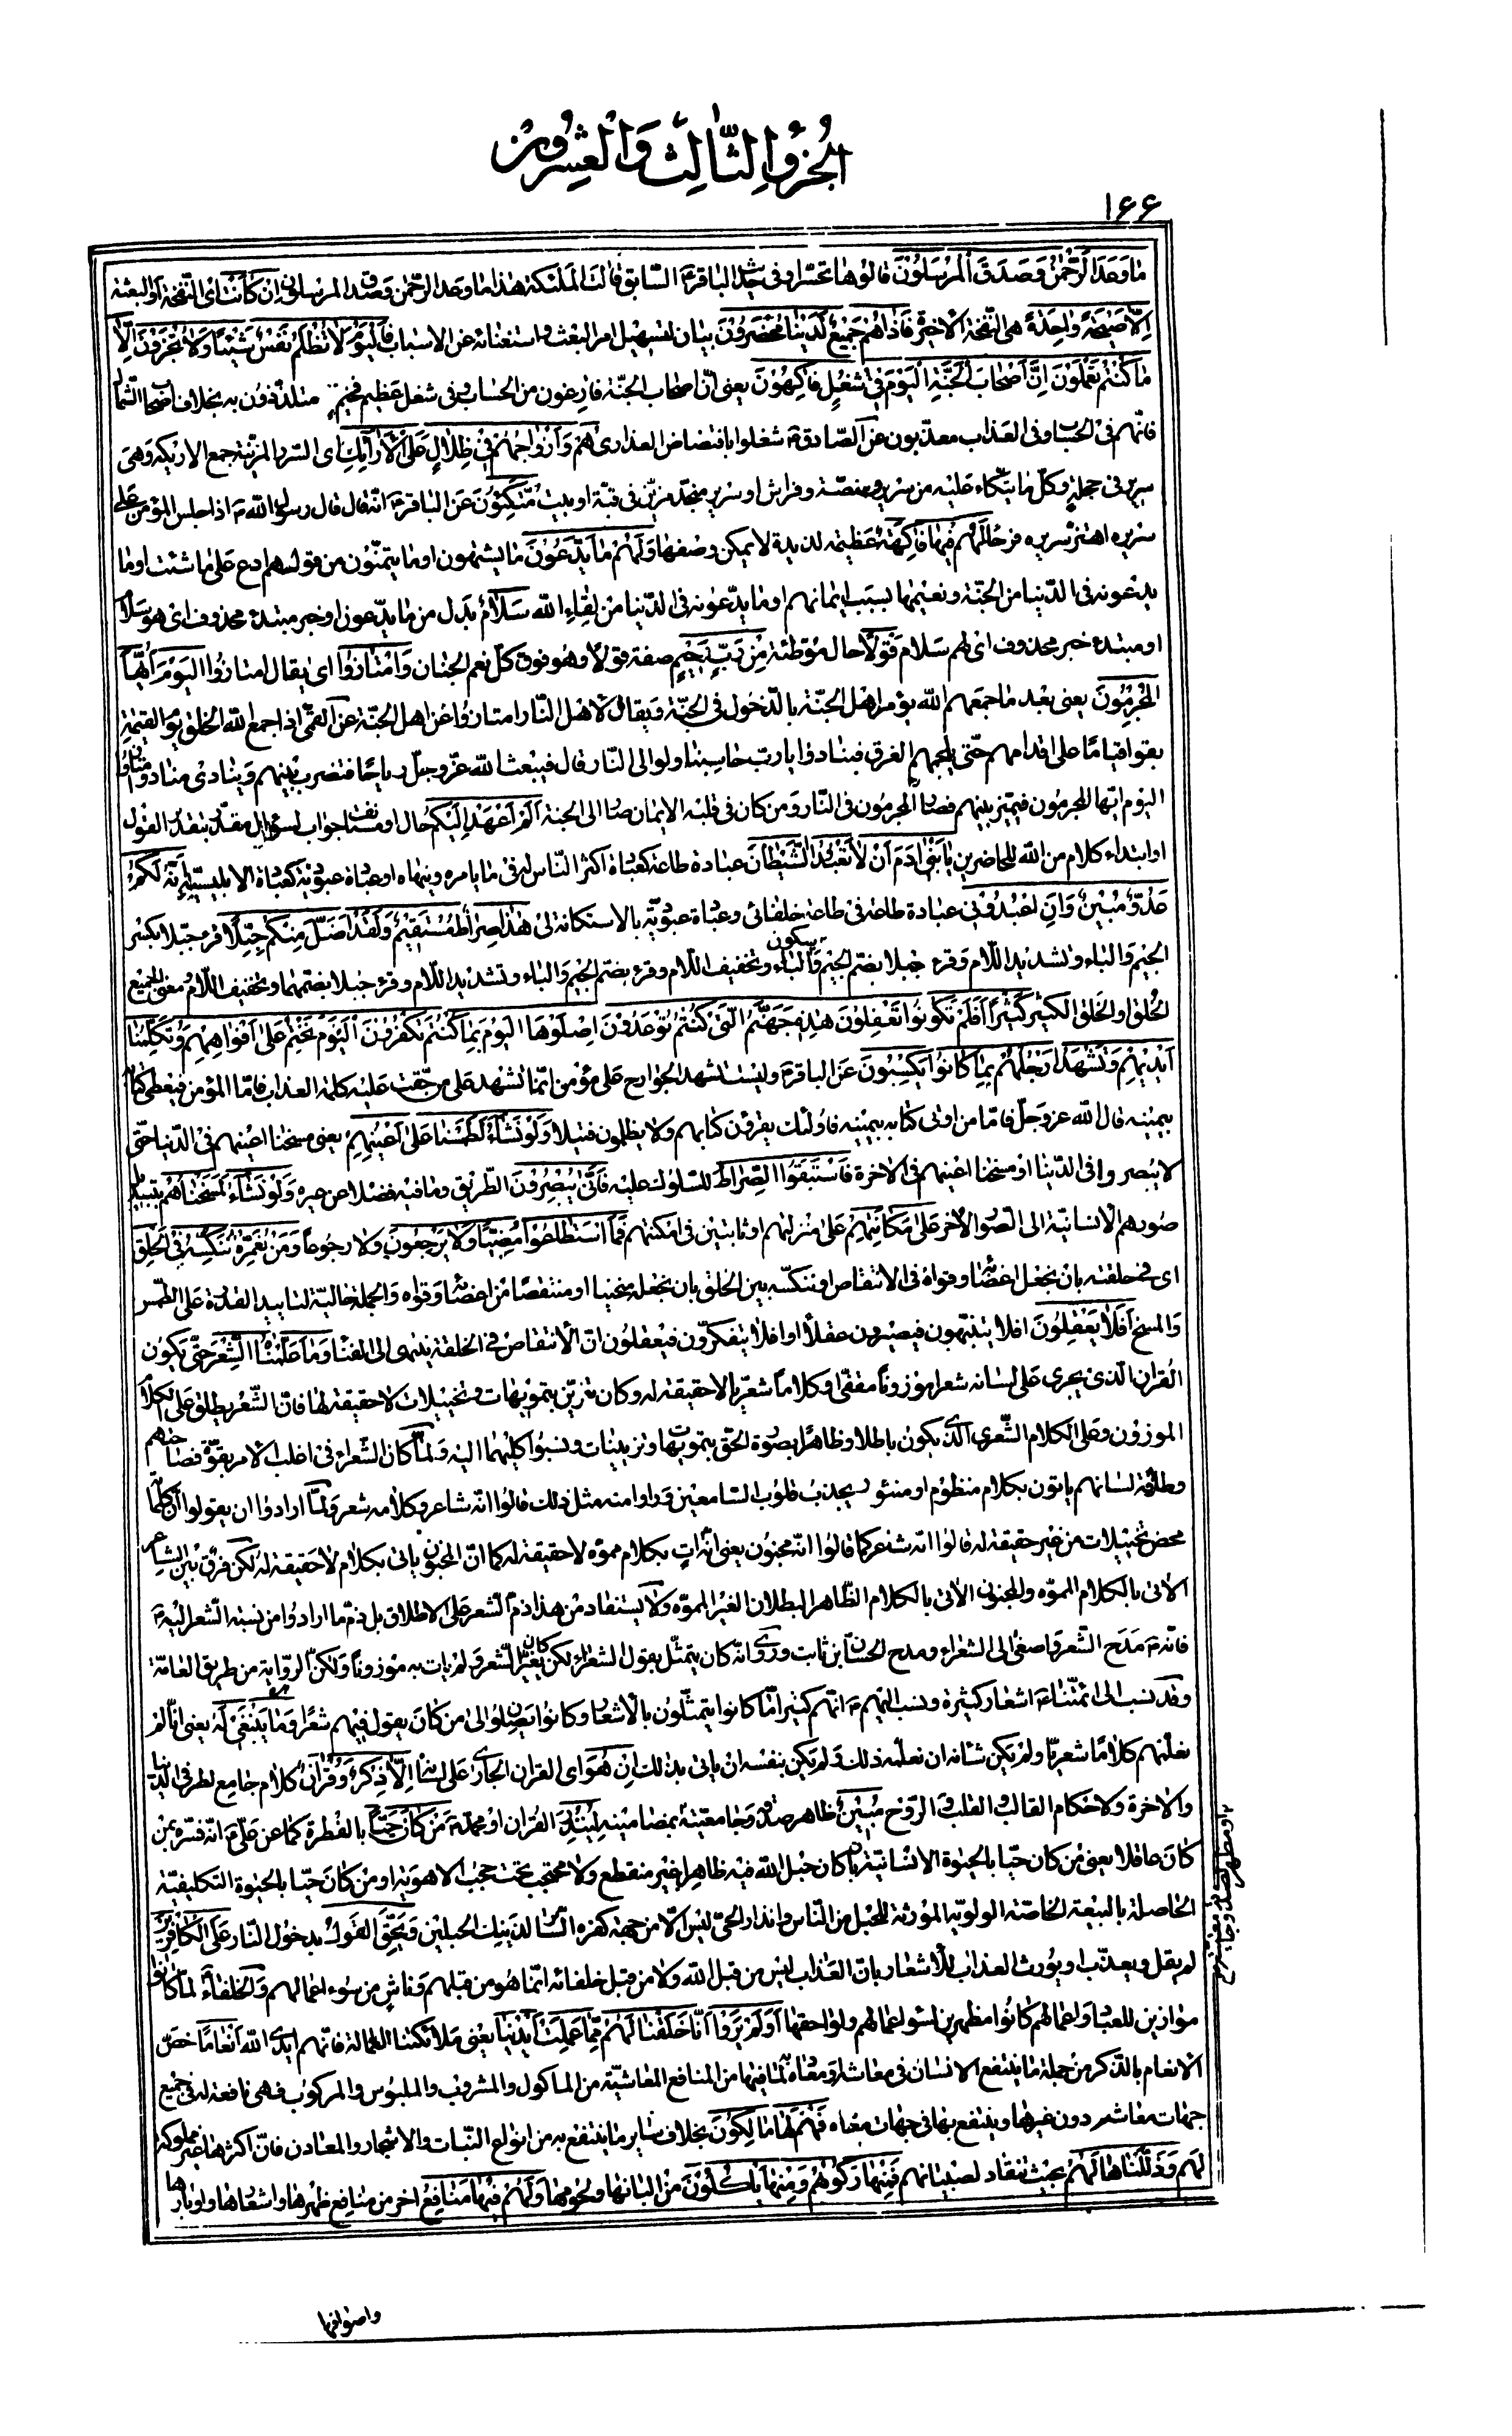 الجزؤ الثالث والعشرون
۱۶۶
مٰا وَعَدَ الرَّحْمٰنُ وَصَدَقَ الْمُرْسَلُونَ قالوها تحسّرا وفى حديث الباقر ع السّابق قالت الملئكة هذا ما وعد الرّحمٰن وصدق المرسلون اِنْ كٰانَتْ اى النّفخة او البعثة
اِلّٰا صَيْحَةً وٰاحِدَةً هى النّفخة الاخيرة فَاِذٰا هُمْ جَمِيعٌ لَدَيْنٰا مُحْضَرُونَ بيان لتسهيل امر البعث واستغنائه عن الاسباب فَالْيَوْمَ لٰا تُظْلَمُ نَفْسٌ شَيْئًا وَلٰا تُجْزَوْنَ اِلّٰا
مٰا كُنْتُمْ تَعْمَلُونَ اِنَّ اَصْحٰابَ الْجَنَّةِ الْيَوْمَ فِى شُغُلٍ فٰاكِهُونَ يعنى انّ اصحاب الجنّة فارغون من الحساب وفى شغل عظيم فخيم متلذّذون به بخلاف اصحاب الشّمال
فانّهم فى الحساب وفى العذاب معذّبون عن الصّادق ع شغلوا بافتضاض العذارى هُمْ وَاَزْوٰاجُهُمْ فِى ظِلٰالٍ عَلَى الْاَرٰائِكِ اى السّرر المزيّنة جمع الاريكة وهى
سرير فى حجلة وكلّ ما يتّكاء عليه من سرير ومنصّة وفراش او سرير منجّد مزيّن فى قبّة او بيت مُتَّكِئُونَ عن الباقر ع انّه قال قال رسول اللّه ص اذا جلس المؤمن على
سريره اهتزّ سريره فرحًا لَهُمْ فِيهٰا فٰاكِهَةٌ عظيمة لذيذة لا يمكن وصفها وَلَهُمْ مٰا يَدَّعُونَ ما يشتهون او ما يتمنّون من قولهم ادع علىّ ما شئت او ما
يدعونه فى الدّنيا من الجنّة ونعيمها بسبب ايمانهم او ما يدّعونه فى الدّنيا من لقاء اللّه سَلٰامٌ بدل من ما يدّعون او خبر مبتدء محذوف اى هو سلام
او مبتدء خبر محذوف اى لهم سلام قَوْلًا حال موطّئة مِنْ رَبٍّ رَحِيمٍ صفة قولا وهو فوق كلّ نعم الجنان وَامْتٰازُوا اى يقال امتازوا الْيَوْمَ اَيُّهَا
الْمُجْرِمُونَ يعنى بعد ما جمعهم اللّه يؤمر اهل الجنّة بالدّخول فى الجنّة ويقال لاهل النّار امتازوا عن اهل الجنّة عن القمّى اذا جمع اللّه الخلق يوم القيمة
بقوا قياما على اقدامهم حتّى يلجمهم العرق فينادوا يا ربّ حاسبنا ولو الى النّار قال فيبعث اللّه عزّ وجلّ رياحًا فتضرب بينهم وينادى مناد وامتازوا
اليوم ايّها المجرمون فيميّز بينهم فصار المجرمون فى النّار ومن كان فى قلبه الايمان صار الى الجنة اَلَمْ اَعْهَدْ اِلَيْكُمْ حال او مستأنف جواب لسؤال مقدّر بتقدير القول
او ابتداء كلام من اللّه للحاضرين يٰا بَنِى اٰدَمَ اَنْ لٰا تَعْبُدُوا الشَّيْطٰانَ عبادة طاعة كعبادة اكثر النّاس له فى ما يامره وينهاه او عبادة عبوديّة كعبادة الابليسيّة اِنَّهُ لَكُمْ
عَدُوٌّ مُبِينٌ وَاَنِ اعْبُدُونِى عبادة طاعة فى طاعة خلفائى وعبادة عبوديّة بالاستكانة لى هٰذٰا صِرٰاطٌ مُسْتَقِيمٌ وَلَقَدْ اَضَلَّ مِنْكُمْ جِبِلًّا قرء جبلّا بكسر
الجيم والباء وتشديد اللّام وقرء جبلا بضمّ الجيم وسكون الباء وتخفيف اللّام وقرء بضمّ الجيم والباء وتشديد اللّام وقرء جبلا بضمّهما وتخفيف اللّام ومعنى الجميع
الخلق والخلق الكثير كَثِيرًا اَفَلَمْ تَكُونُوا تَعْقِلُونَ هٰذِهِ جَهَنَّمُ الَّتِى كُنْتُمْ تُوعَدُونَ اِصْلَوْهَا الْيَوْمَ بِمٰا كُنْتُمْ تَكْفُرُونَ اَلْيَوْمَ نَخْتِمُ عَلىٰ اَفْوٰاهِهِمْ وَتُكَلِّمُنٰا
اَيْدِيهِمْ وَتَشْهَدُ اَرْجُلُهُمْ بِمٰا كٰانُوا يَكْسِبُونَ عن الباقر ع وليست تشهد الجوارح على مؤمن انّما تشهد على من حقّت عليه كلمة العذاب فامّا المؤمن فيعطى كتابه
بيمينه قال اللّه عز وجلّ فامّا من اوتى كتابه بيمينه فاولئك يقرؤن كتابهم ولا يظلمون فتيلا وَلَوْ نَشٰاءُ لَطَمَسْنٰا عَلىٰ اَعْيُنِهِمْ يعنى مسخنا اعينهم فى الدّنيا حتّى
لا يبصروا فى الدّنيا او مسخنا اعينهم فى الاخرة فَاسْتَبَقُوا الصِّرٰاطَ للسّلوك عليه فَاَنّٰى يُبْصِرُونَ الطّريق وما فيه فضلا عن غيره وَلَوْ نَشٰاءُ لَمَسَخْنٰاهُمْ بتبديل
صورهم الانسانيّة الى الصّور الاخر عَلىٰ مَكٰانَتِهِمْ على منزلتهم او ثابتين فى امكنتهم فَمَا اسْتَطٰاعُوا مُضِيًّا وَلٰا يَرْجِعُونَ ولا رجوعا وَمَنْ نُعَمِّرْهُ نُنَكِّسْهُ فِى الْخَلْقِ
اى فى خلقته بان نجعل اعضاءه وقواه فى الانتقاص او ننكسه بين الخلق بان نجعله منحنيا او منتقصًا من اعضائه وقواه والجملة حاليّة لتاييد القدرة على الطّمس
والمسخ اَفَلٰا يَعْقِلُونَ افلا يتنبّهون فيصيرون عقلاً او افلا يتفكّرون فيعقلون انّ الانتقاص فى الخلقة ينتهى الى الفناء وَمٰا عَلَّمْنٰاهُ الشِّعْرَ حتّى يكون
القران الّذى يجرى على لسانه شعرا موزونًا مقفّى او كلاما شعريّا لا حقيقة له وكان تزيّن بتمويهات وتخييلات لا حقيقة لها فانّ الشّعر يطلق على الكلام
الموزون وعلى الكلام الشّعرى الّذى يكون باطلا وظاهرًا بصورة الحقّ بتمويهات وتزيينات ونسبوا كليهما اليه ولمّا كان الشّعراء فى اغلب الامر بقوّة فصاحتهم
وطلاقة لسانهم ياتون بكلام منظوم او منثور يجذب قلوب السّامعين وراوا منه مثل ذلك قالوا انّه شاعر وكلامه شعر ولمّا ارادوا ان يقولوا انّ كلامه
محض تخييلات من غير حقيقة له قالوا انّه شاعر كما قالوا انّه مجنون يعنى انّه ات بكلام مموّه لا حقيقة له كما انّ المجنون ياتى بكلام لا حقيقة له لكن فرق بين الشاعر
الاتى بالكلام المموّه والمجنون الاتى بالكلام الظّاهر البطلان الغير المموّه ولا يستفاد من هذا ذمّ الشّعر على الاطلاق بل ذمّ ما ارادوا من نسبة الشّعر اليه ص
فانّه ص مدح الشّعر واصغى الى الشعراء ومدح الحسّان بن ثابت وروى انّه كان يتمثّل بقول الشعراء لكن كان يغيّر الشّعر ولم يات به موزونًا ولكنّ الرّواية من طريق العامّة
وقد نسب الى ائمّتنا ع اشعار كثيرة ونسب اليهم ع انّهم كثيرا ما كانوا يتمثّلون بالاشعار وكانوا يصلون الى من كان يقول فيهم شعرًا وَمٰا يَنْبَغِى لَهُ يعنى انّا لم
نعلّمهم كلامًا شعريّا ولم يكن شانه ان نعلّمه ذلك ولم يكن بنفسه ان ياتى بذلك اِنْ هُوَ اى القران الجارى على لسانه اِلّٰا ذِكْرٌ وَقُرْاٰنٌ كلام جامع لطرفى الدّنيا
والاخرة ولاحكام القالب والقلب والرّوح مُبِينٌ ظاهر صدقه وجامعيّته بمضامينه لِيُنْذِرَ القران او محمّد ص مَنْ كٰانَ حَيًّا بالفطرة كما عن علىّ ع انّه فسّره بمن
كان عاقلا يعنى من كان حيّا بالحيوة الانسانيّة بان كان حبل اللّه فيه ظاهرا غير منقطع ولا محتجب تحت حجب الاهوية او من كان حيّا بالحيوة التكليفيّة
الحاصلة بالبيعة الخاصّة الولويّة المورثة للحبل من النّاس وانذار الحىّ ليس الّا من جهة كفره السّاتر لذينك الحبلين وَيَحِقَّ الْقَوْلُ بدخول النّار عَلَى الْكٰافِرِينَ
لم يقل ويعذّب او يورث العذاب للاشعار بانّ العذاب ليس من قبل اللّه ولا من قبل خلفائه انّما هو من قبلهم وناش من سوء اعمالهم والخلفاء لمّا كانوا
موازين للعباد واعمالهم كانوا مظهرين لسوء اعمالهم ولواحقها اَوَلَمْ يَرَوْا اَنّٰا خَلَقْنٰا لَهُمْ مِمّٰا عَمِلَتْ اَيْدِينٰا يعنى ملائكتنا العمّالة فانّهم ايدى اللّه اَنْعٰامًا خصّ
الانعام بالذّكر من جملة ما ينتفع الانسان فى معاشه ومعاده لما فيها من المنافع المعاشيّة من المأكول والمشروب والملبوس والمركوب فهى نافعة له فى جميع
جهات معاشه دون غيرها وينتفع بها فى جهات معاده فَهُمْ لَهٰا مٰالِكُونَ بخلاف ساير ما ينتفع به من انواع النّبات والاشجار والمعادن فانّ اكثرها غير مملوكة
لهم وَذَلَّلْنٰاهٰا لَهُمْ بحيث تنقاد لصبيانهم فَمِنْهٰا رَكُوبُهُمْ وَمِنْهٰا يَأْكُلُونَ من البانها ولحومها وَلَهُمْ فِيهٰا مَنٰافِعُ اخر من منافع ظهرها واشعارها واوبارها
او مظهر لصدقه وجامعيّته
واصوافها